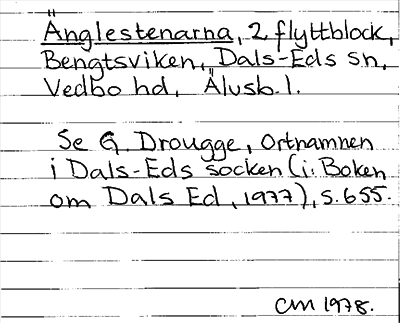 Änglestenarna, 2 flyttblock,
Bengtsviken, Dals-Eds sn,
Vedbo hd, Älvsb. l.
Se G. Drougge, Ortnamnen
i Dals-Eds socken (i: Boken
om Dals Ed, 1977), s. 655.
CM 1978.